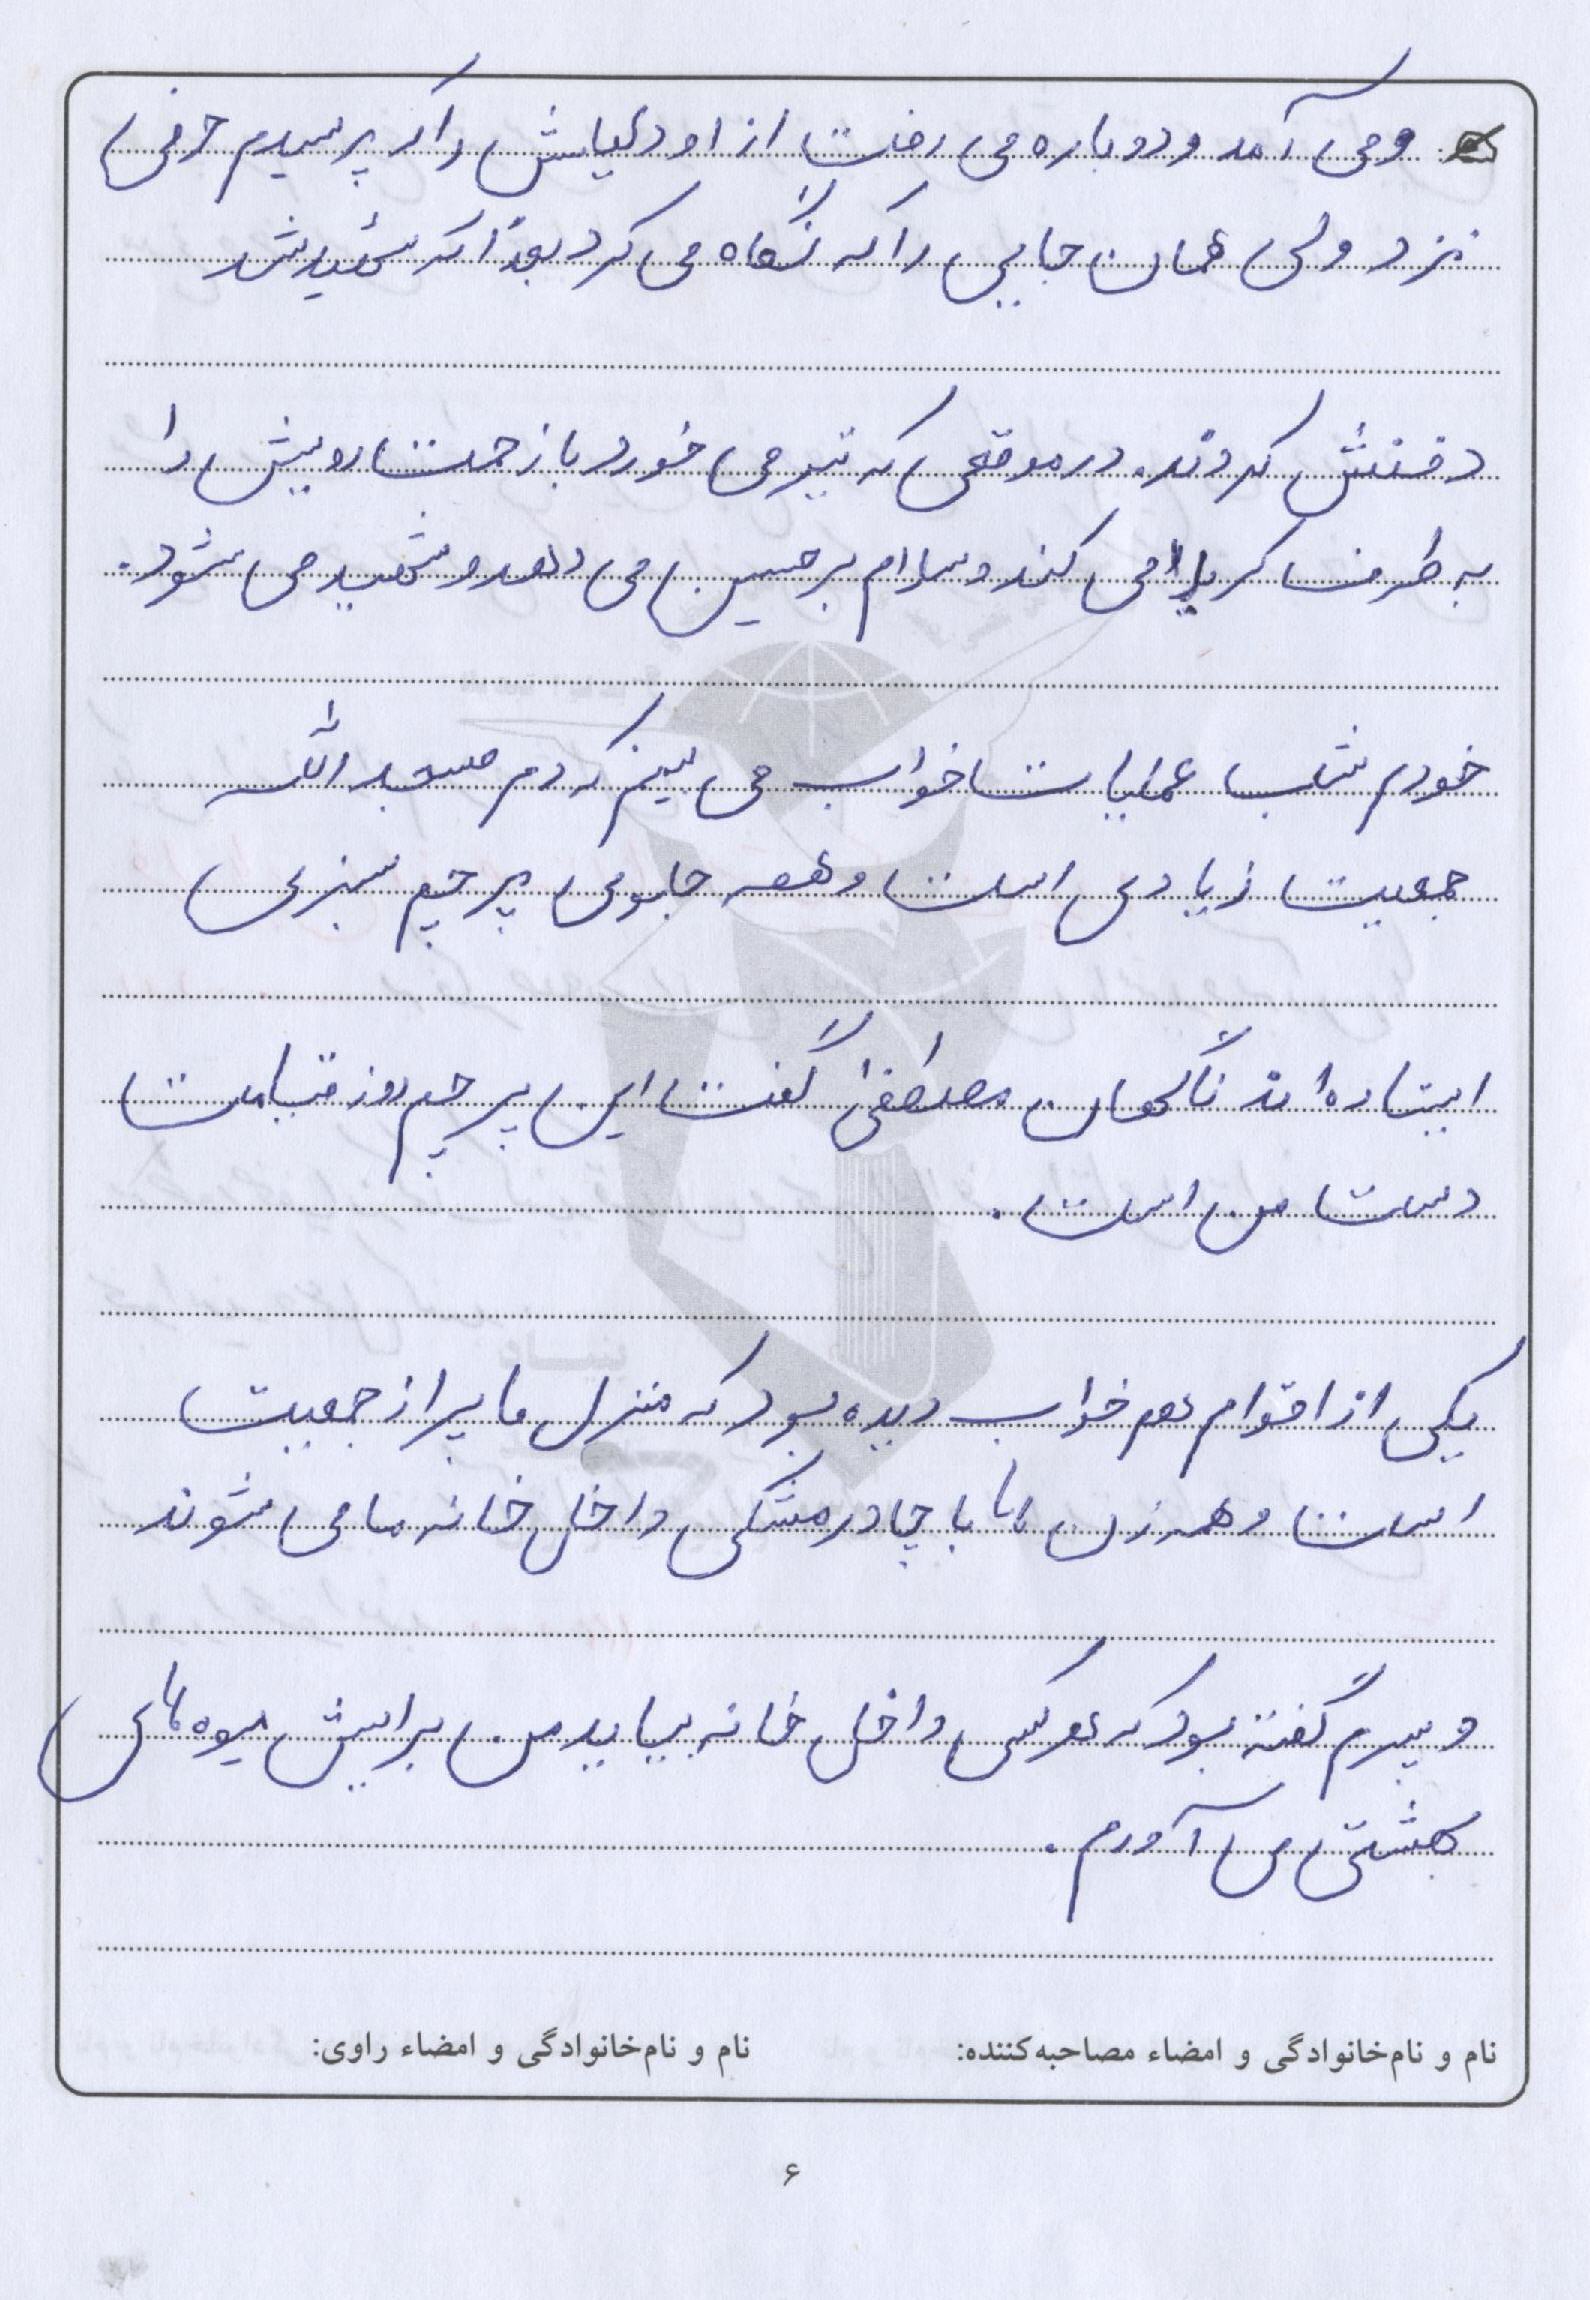 و می آمد و دوباره می رفت از او دلیلش را که پرسیدم حرفی
نزد ولی همان جایی را که نگاه می کرد بعداً که شهید شد
دفنش کردند. در موقعی که تیر می خورد با زحمت رویش را
به طرف کربلا می کند و سلام بر حسین می دهد و شهید می شود.
خودم شب عملیات خواب می بینم که دم مسجد الله
جمعیت زیادی است و همه جلوی پرچم سبزی
ایستاده اند ناگهان مصطفی گفت این پرچم روز قیامت
دست من است.
یکی از اقوام هم خواب دیده بود که منزل ما پر از جمعیت
است و همه زن ها با چادر مشکی داخل خانه ما می شوند
و پسرم گفته بود که هر کس داخل خانه بیاید من برایش میوه های
بهشتی می آورم.
نام و نام‌خانوادگی و امضاء مصاحبه‌کننده: نام و نام‌خانوادگی و امضاء راوی:
۶